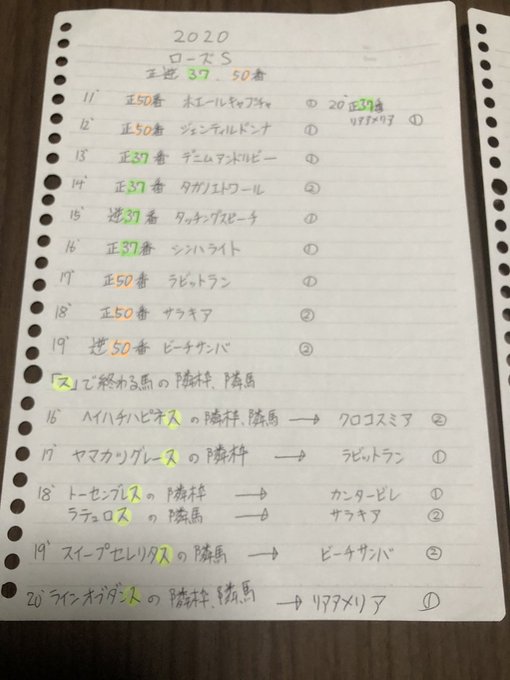 2020
ローズS
正逆 37、50番
11' 正50番 ホエールキャプチャ ①
20' 正37番
リアアメリア ①
12' 正50番 ジェンティルドンナ ①
13' 正37番 デニムアンドルビー ①
14' 正37番 タガノエトワール ②
15' 逆37番 タッチングスピーチ ①
16' 正37番 シンハライト ①
17' 正50番 ラビットラン ①
18' 正50番 サラキア ②
19' 逆50番 ビーチサンバ ②
「ス」で終わる馬の隣枠、隣馬
16' ヘイハチハピネスの隣枠、隣馬 → クロコスミア ②
17' ヤマカツグレースの隣枠 → ラビットラン ①
18' トーセンブレスの隣枠 → カンタービレ ①
ラテュロスの隣馬 → サラキア ②
19' スイープセレリタスの隣馬 → ビーチサンバ ②
20' ラインオブダンスの隣枠、隣馬 → リアアメリア ①